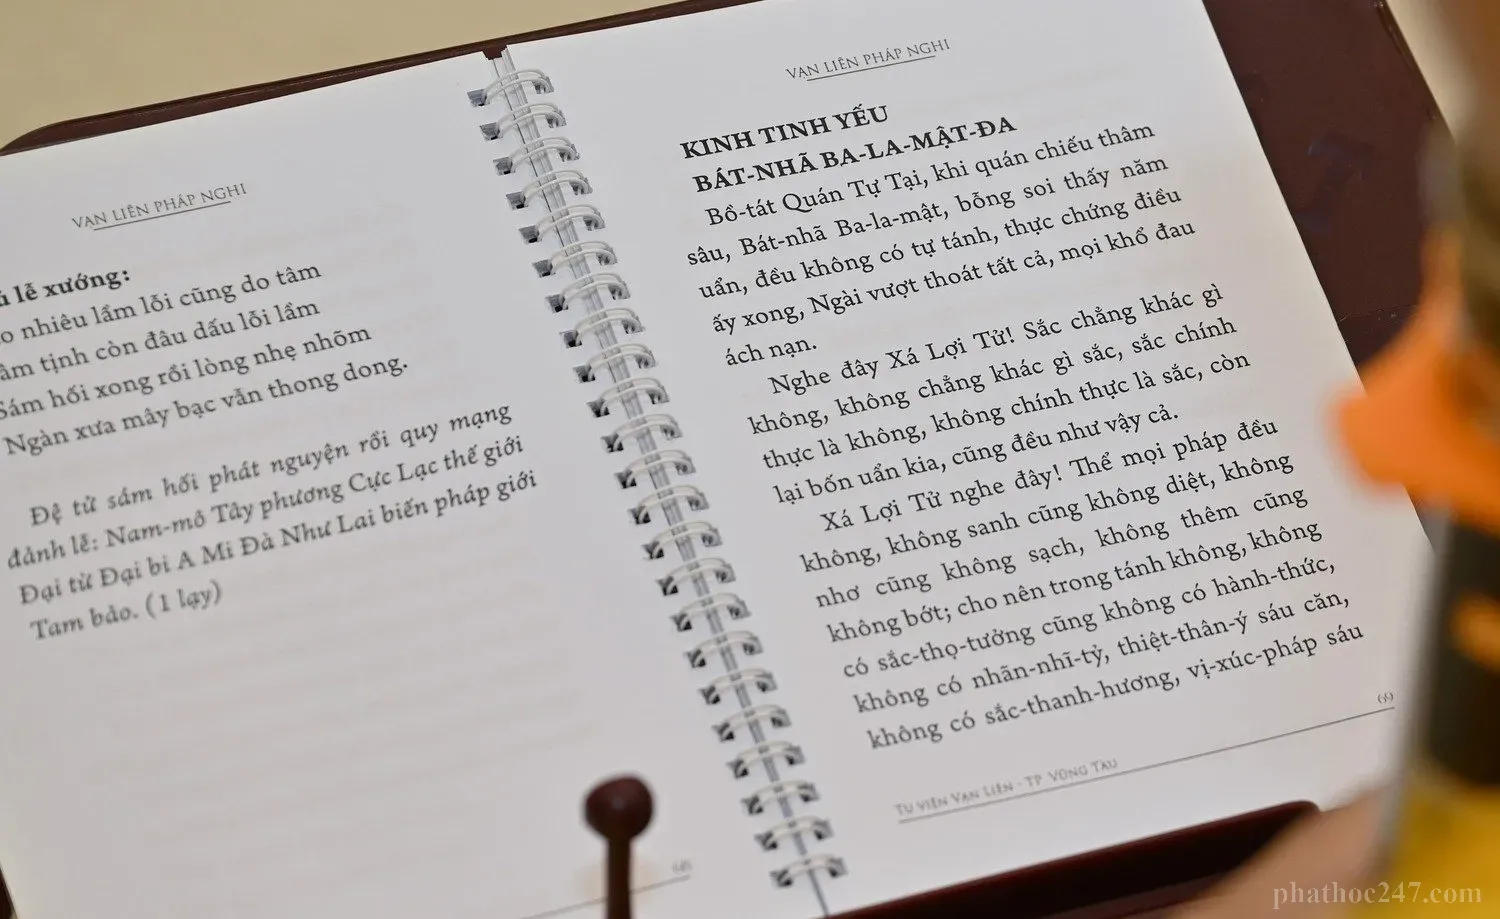 VẠN LIÊN PHÁP NGHI
lễ xướng:
nhiêu lầm lỗi cũng do tâm
tịnh còn đâu dấu lỗi lầm
Sám hối xong rồi lòng nhẹ nhõm
Ngàn xưa mây bạc vẫn thong dong.
Đệ tử sám hối phát nguyện rồi quy mạng
đảnh lễ: Nam-mô Tây phương Cực Lạc thế giới
Đại từ Đại bi A Mi Đà Như Lai biến pháp giới
Tam bảo. (1 lạy)
VẠN LIÊN PHÁP NGHI
KINH TINH YẾU
BÁT-NHÃ BA-LA-MẬT-ĐA
Bồ-tát Quán Tự Tại, khi quán chiếu thâm
sâu, Bát-nhã Ba-la-mật, bỗng soi thấy năm
uẩn, đều không có tự tánh, thực chứng điều
ấy xong, Ngài vượt thoát tất cả, mọi khổ đau
ách nạn.
Nghe đây Xá Lợi Tử! Sắc chẳng khác gì
không, không chẳng khác gì sắc, sắc chính
thực là không, không chính thực là sắc, còn
lại bốn uẩn kia, cũng đều như vậy cả.
Xá Lợi Tử nghe đây! Thể mọi pháp đều
không, không sanh cũng không diệt, không
nhơ cũng không sạch, không thêm cũng
không bớt; cho nên trong tánh không, không
có sắc-thọ-tưởng cũng không có hành-thức,
không có nhãn-nhĩ-tỷ, thiệt-thân-ý sáu căn,
không có sắc-thanh-hương, vị-xúc-pháp sáu
69
TU VIỆN VẠN LIÊN - TP VŨNG TÀU
phathoc247.com